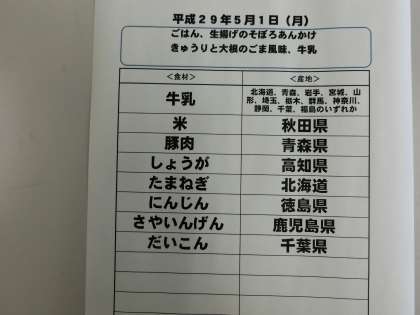 平成29年5月1日（月）
ごはん、生揚げのそぼろあんかけ
きゅうりと大根のごま風味、牛乳
＜食材＞ ＜産地＞
牛乳 北海道、青森、岩手、宮城、山
形、埼玉、栃木、群馬、神奈川、
静岡、千葉、福島のいずれか
米 秋田県
豚肉 青森県
しょうが 高知県
たまねぎ 北海道
にんじん 徳島県
さやいんげん 鹿児島県
だいこん 千葉県